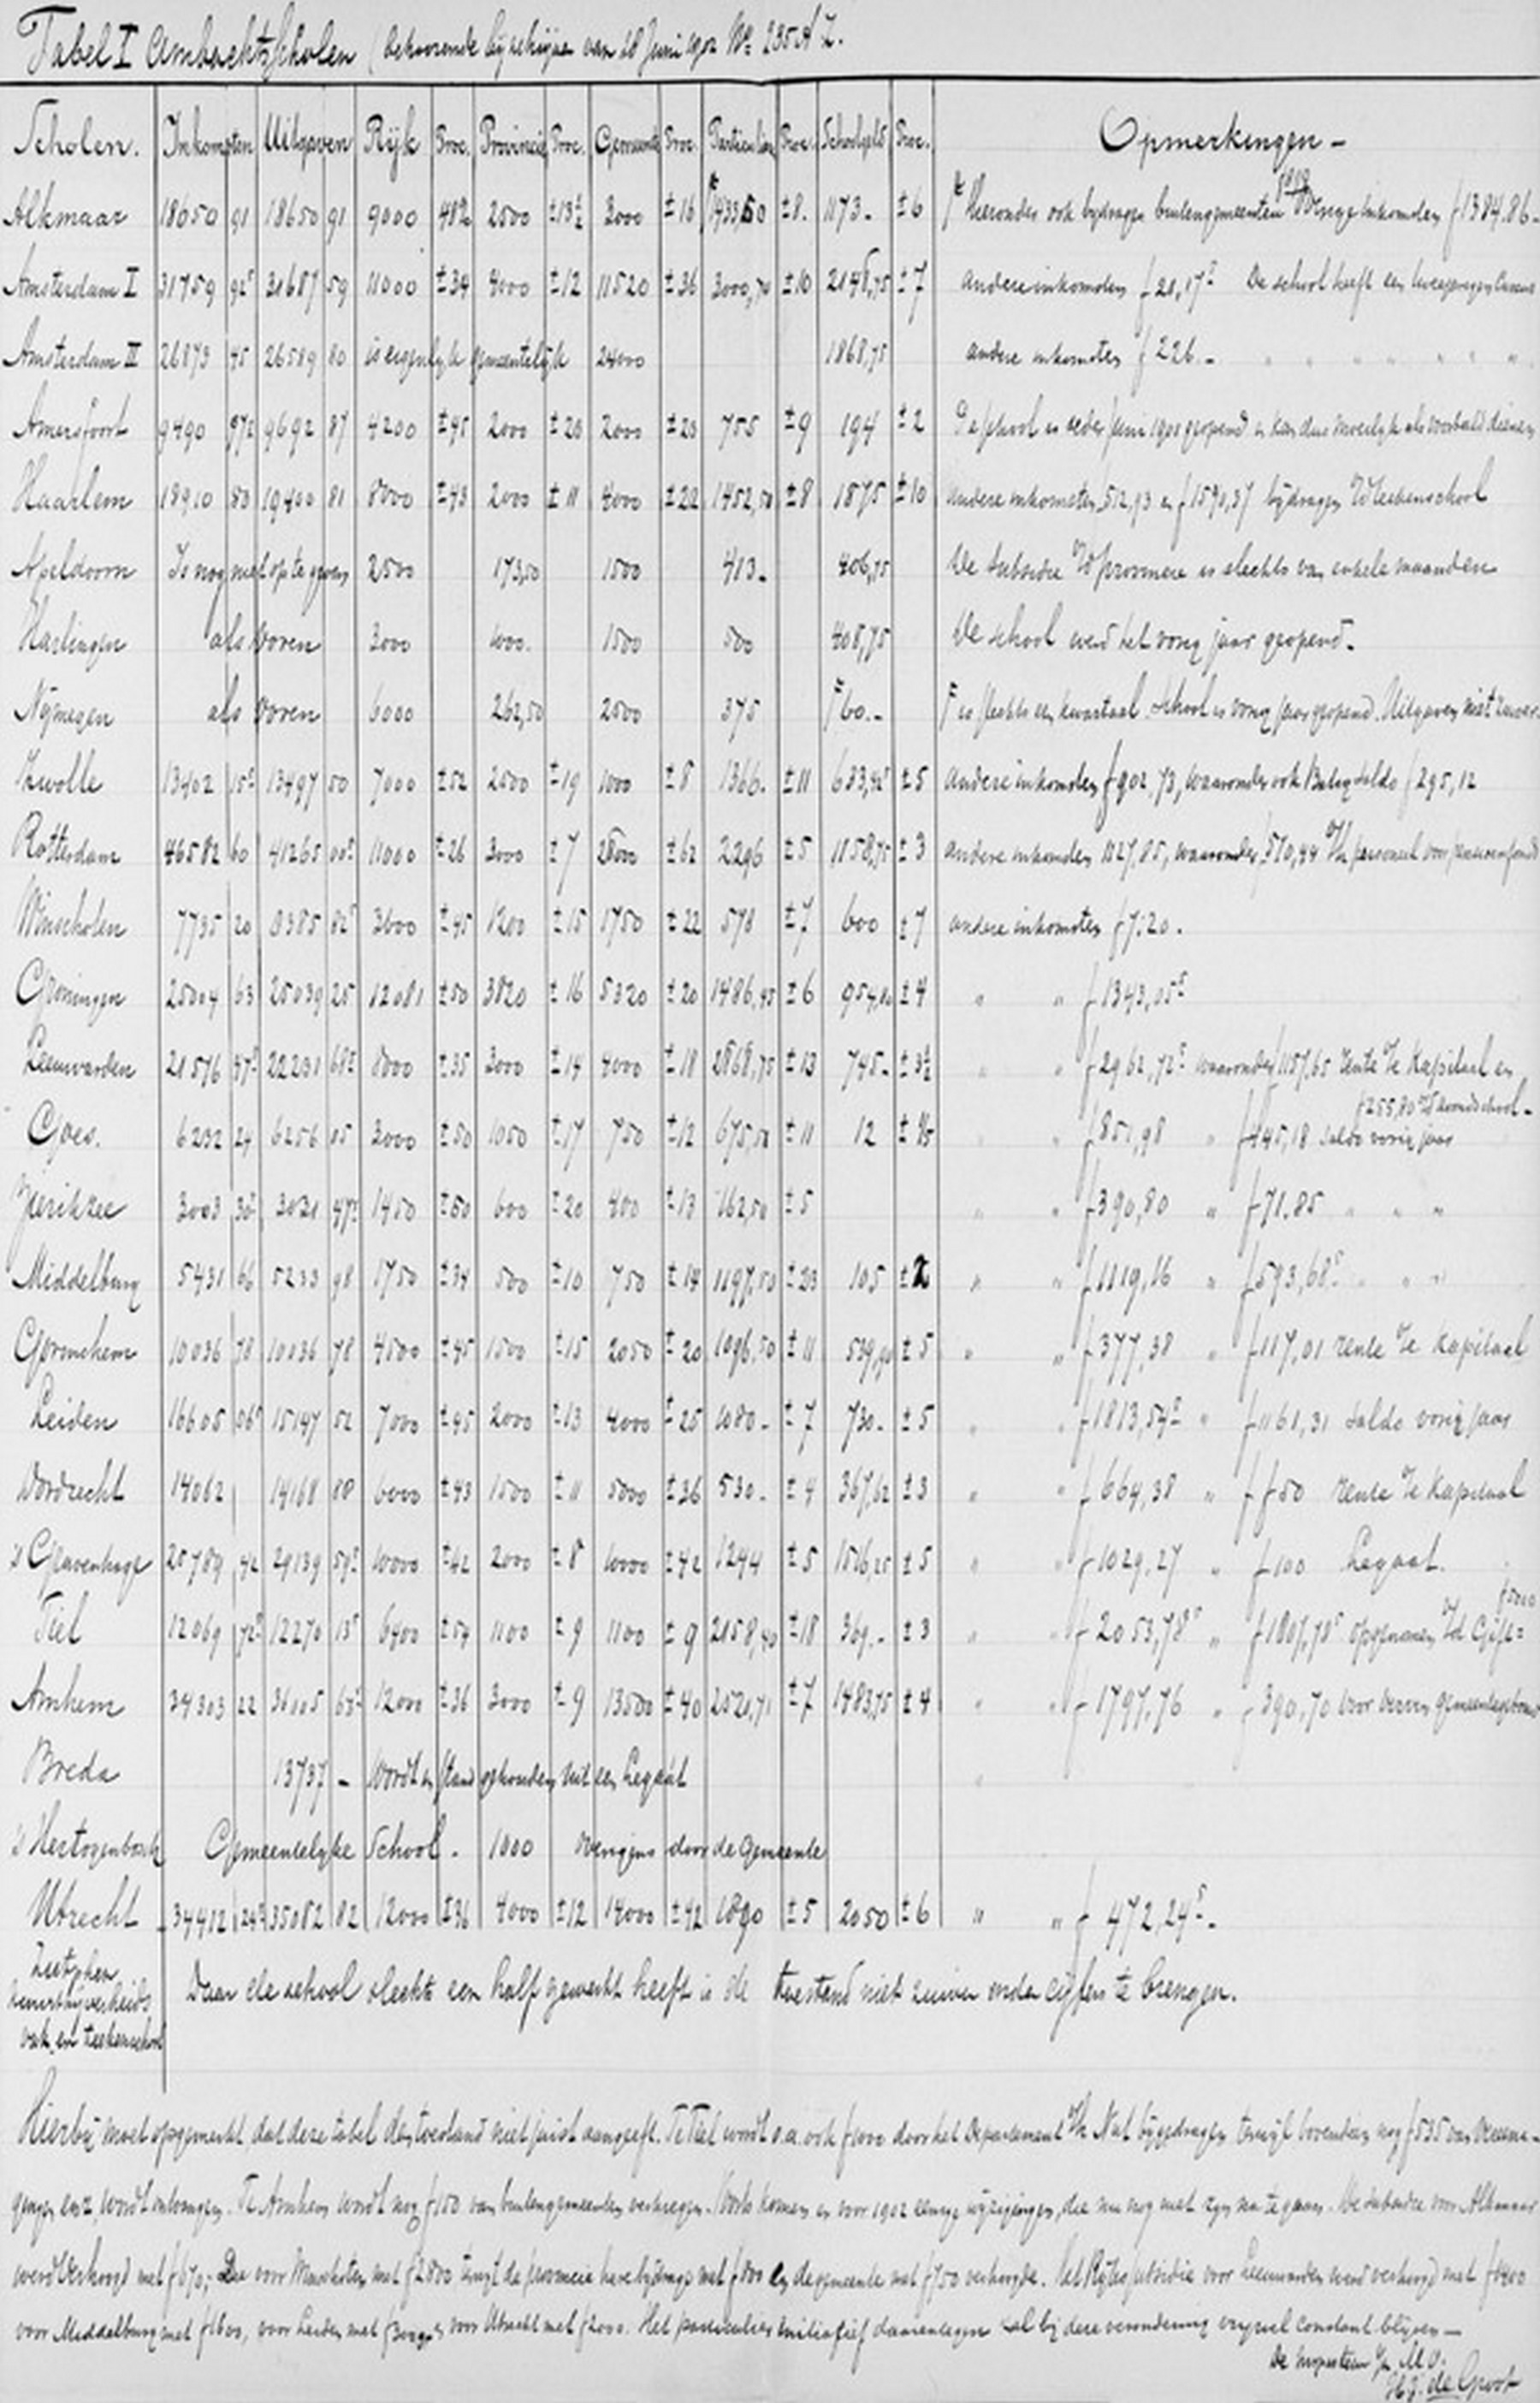 Tabel I Ambachtsscholen (behoorende bij schrijven van 18 Juni 1902 No 235 A Z.
Scholen. Inkomsten Uitgaven Rijk Proc. Provincie Proc. Gemeente Proc. Particulier Proc. Schoolgeld Proc. Opmerkingen -
Alkmaar 18650 91 18650 91 9000 48% 2500 ±13½ 3000 ±16 1433,50 ±8. 1173.- ±6 Hieronder ook bijdragen buitengemeenten Overige Inkomsten f 1384.86-
Amsterdam I 31759 92⁵ 31687 59 11000 ±34 4000 ±12 11520 ±36 3000,70 ±10 2148,75 ±7 andere inkomsten f 21,17⁵ De school heeft een tweejarigen Cursus
Amsterdam II 26873 45 26589 80 is eigenlijk gemeentelijk 24000 1868,75 andere inkomsten f 226.- " " " " " " "
Amersfoort 9490 97² 9692 87 4200 ±45 2000 ±20 2000 ±20 755 ±9 194 ±2 De school is eerst Juni 1901 geopend en kan dus moeilijk als voorbeeld dienen
Haarlem 18910 83 19400 81 8000 ±43 2000 ±11 4000 ±22 1452,50 ±8 1875 ±10 andere inkomsten 512,93 en f 1590,37 bijdragen Teekenschool
Apeldoorn Is nog niet op te geven 2500 173,50 1500 413.- 406,75 De Subsidie v/d provincie is slechts van enkele maanden
Harlingen als voren 3000 1000. 1500 500 408,75 De school werd het vorig jaar geopend.
Nijmegen als voren 6000 262,50 2500 375 F 60.- F is slechts een kwartaal. School is vorig jaar geopend. Uitgaven niet zuiver
Zwolle 13402 15⁵ 13497 50 7000 ±52 2500 ±19 1000 ±8 1366. ±11 633,42⁵ ±5 andere inkomsten f 902,73, waaronder ook Batig saldo f 295,12
Rotterdam 46582 60 41265 00⁵ 11000 ±26 3000 ±7 28000 ±62 2296 ±5 1158,75 ±3 andere inkomsten 1127,85, waaronder 570,44 v/h personeel voor pensioenfonds
Winschoten 7735 20 8385 82⁵ 3600 ±45 1200 ±15 1750 ±22 578 ±7 600 ±7 andere inkomsten f 7.20.
Groningen 25004 63 25039 25 12081 ±50 3820 ±16 5320 ±20 1486,45 ±6 954,80 ±4 " " f 1343,05⁵
Leeuwarden 21576 47⁵ 22231 68⁵ 8000 ±35 3000 ±14 4000 ±18 2868,75 ±13 745.- ±3½ " " f 2962,72⁵ waaronder 1157,65 rente v/e Kapitaal en
f 255,80 v/d Avondschool-
Goes. 6232 24 6256 05 3000 ±50 1050 ±17 750 ±12 675,50 ±11 12 " " f 851,98 " f 445,18 saldo vorig jaar
Zierikzee 3003 30⁵ 3021 47⁵ 1450 ±50 600 ±20 400 ±13 162,50 ±5 " " f 390,80 " f 71.85 " " "
Middelburg 5431 66 5233 98 1750 ±34 500 ±10 750 ±14 1197,50 ±23 105 ±2 " " f 1119,16 " f 593,68⁵ " " "
Gorinchem 10036 78 10036 78 4500 ±45 1500 ±15 2050 ±20 1096,50 ±11 539,90 ±5 " " f 377,38 " f 117,01 rente v/e Kapitaal
Leiden 16605 06⁵ 15147 52 7000 ±45 2000 ±13 4000 ±25 1080.- ±7 730.- ±5 " " f 1813,54⁵ " f 1161,31 saldo vorig jaar
Dordrecht 14062 14168 80 6000 ±43 1500 ±11 5000 ±36 530.- ±4 367,62 ±3 " " f 664,38 " f 50 rente v/e Kapitaal
's Gravenhage 25789 42 29139 59⁵ 10000 ±42 2000 ±8 10000 ±42 1244 ±5 1516,25 ±5 " " f 1029,27 " f 100 Legaat.
Tiel 12069 72⁵ 12270 13⁵ 6400 ±54 1100 ±9 1100 ±9 2158,40 ±18 369.- ±3 " " f 2053,78⁵ " f 1807,78⁵ opgenomen v/d Gift= f 5000
Arnhem 34303 22 36005 63⁵ 12000 ±36 3000 ±9 13500 ±40 2521,71 ±7 1483,75 ±4 " " f 1797,76 " f 390,70 voor verven gemeentegebouw
Breda 13737 - Wordt in stand gehouden uit een Legaat
's Hertogenbosch Gemeentelijke School. 1000 overigens door de Gemeente
Utrecht 34412 24⁵ 35082 82 12000 ±36 4000 ±12 14000 ±42 1890 ±5 2050 ±6 " " f 472,24⁵.
Zutphen
kunstnijverheids
vak en teekenschool
Daar de school slechts een half gewerkt heeft is de toestand niet zuiver onder cijfers te brengen.
Hierbij moet opgemerkt dat deze tabel den toestand niet juist aangeeft. Te Tiel wordt o.a. ook f 1000 door het Departement v/h Nut bijgedragen terwijl bovendien nog f 535 van vereeni-
gingen enz. wordt ontvangen. Te Arnhem wordt nog f 150 van buitengemeenten verkregen. Voorts komen er voor 1902 eenige wijzigingen, die nu nog niet zijn na te gaan. De subsidie voor Alkmaar
werd verhoogd met f 670; Die voor Winschoten met f 2800 terwijl de provincie hare bijdrage met f 800 en de gemeente met f 750 verhoogde. Het Rijkssubsidie voor Leeuwarden werd verhoogd met f 3400
voor Middelburg met f 1600, voor Leiden met f 3000, voor Utrecht met f 2000. Het particulier initiatief daarentegen zal bij deze verandering vrijwel constant blijven -
De Inspecteur v/h M.O.
H.J. de Groot